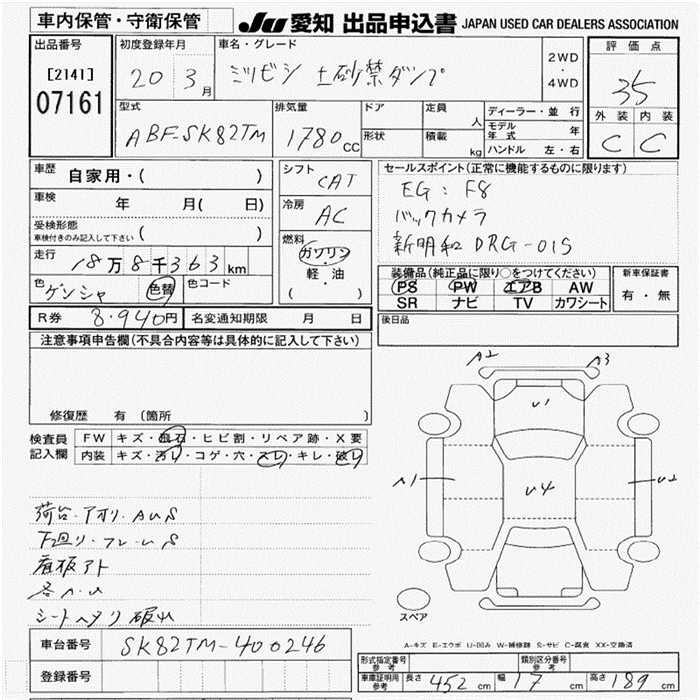 車内保管・守衛保管
JU 愛知 出品申込書 JAPAN USED CAR DEALERS ASSOCIATION
出品番号
[2141]
07161
初度登録年月
20 3月
車名・グレード
ミツビシ 土砂禁ダンプ
2WD
・
4WD
評価点
35
外装 内装
C C
型式
ABF-SK82TM
排気量
1780cc
ドア
形状
定員 人
積載 kg
ディーラー・並行
モデル年式 年
ハンドル 左・右
車歴 自家用・( )
車検 年 月( 日)
受検形態
車検付きのみ記入して下さい ( )
走行 18万8千363km
色 ゲンシャ 色替 色コード
シフト
CAT
冷房
AC
燃料
ガソリン
・
軽・油
( )
セールスポイント(正常に機能するものに限ります)
EG:F8
バックカメラ
新明和 DRG-01S
装備品(純正品に限り○をつけてください)
PS PW エアB AW
SR ナビ TV カワシート
新車保証書
有・無
R券 8.940円 名変通知期限 月 日
後日品
注意事項申告欄(不具合内容等は具体的に記入して下さい)
修復歴 有 (箇所 )
検査員記入欄
FW キズ・飛石・ヒビ割・リペア跡・X要
内装 キズ・汚れ・コゲ・穴・スレ・キレ・破レ
荷台.アオリ.AUS
下回り.フレームS
看板アト
各A.U
シートヘタリ 破れ
A2 A3
U1
A1 U4 U2
スペア
A-キズ E-エクボ U-凹み W-補修跡 S-サビ C-腐食 XX-交換済
車台番号 SK82TM-400246
登録番号
形式指定番号 参考
類別区分番号 参考
車庫証明用 参考 長さ 452cm 幅 17cm 高さ 189cm